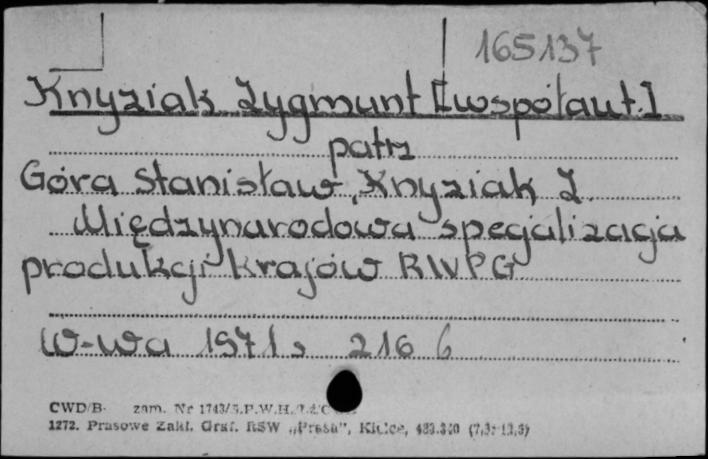 165137
Knyziak Zygmunt [współaut.]
patrz
Góra Stanisław, Knyziak Z.
Międzynarodowa specjalizacja
produkcji krajów RWPG
W-wa 1971, 216
CWD/B- zam. Nr 1743/
1272. Prasowe Zakł. Graf. RSW „Prasa", Kielce,